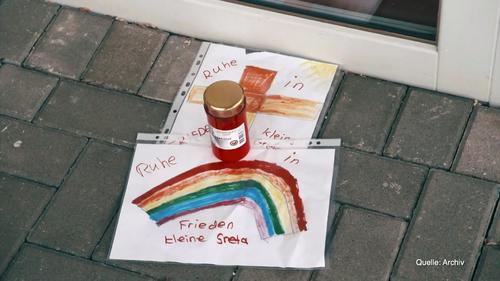 Ruhe
in
kleine
Ruhe
in
Frieden
kleine Sneta
Quelle: Archiv